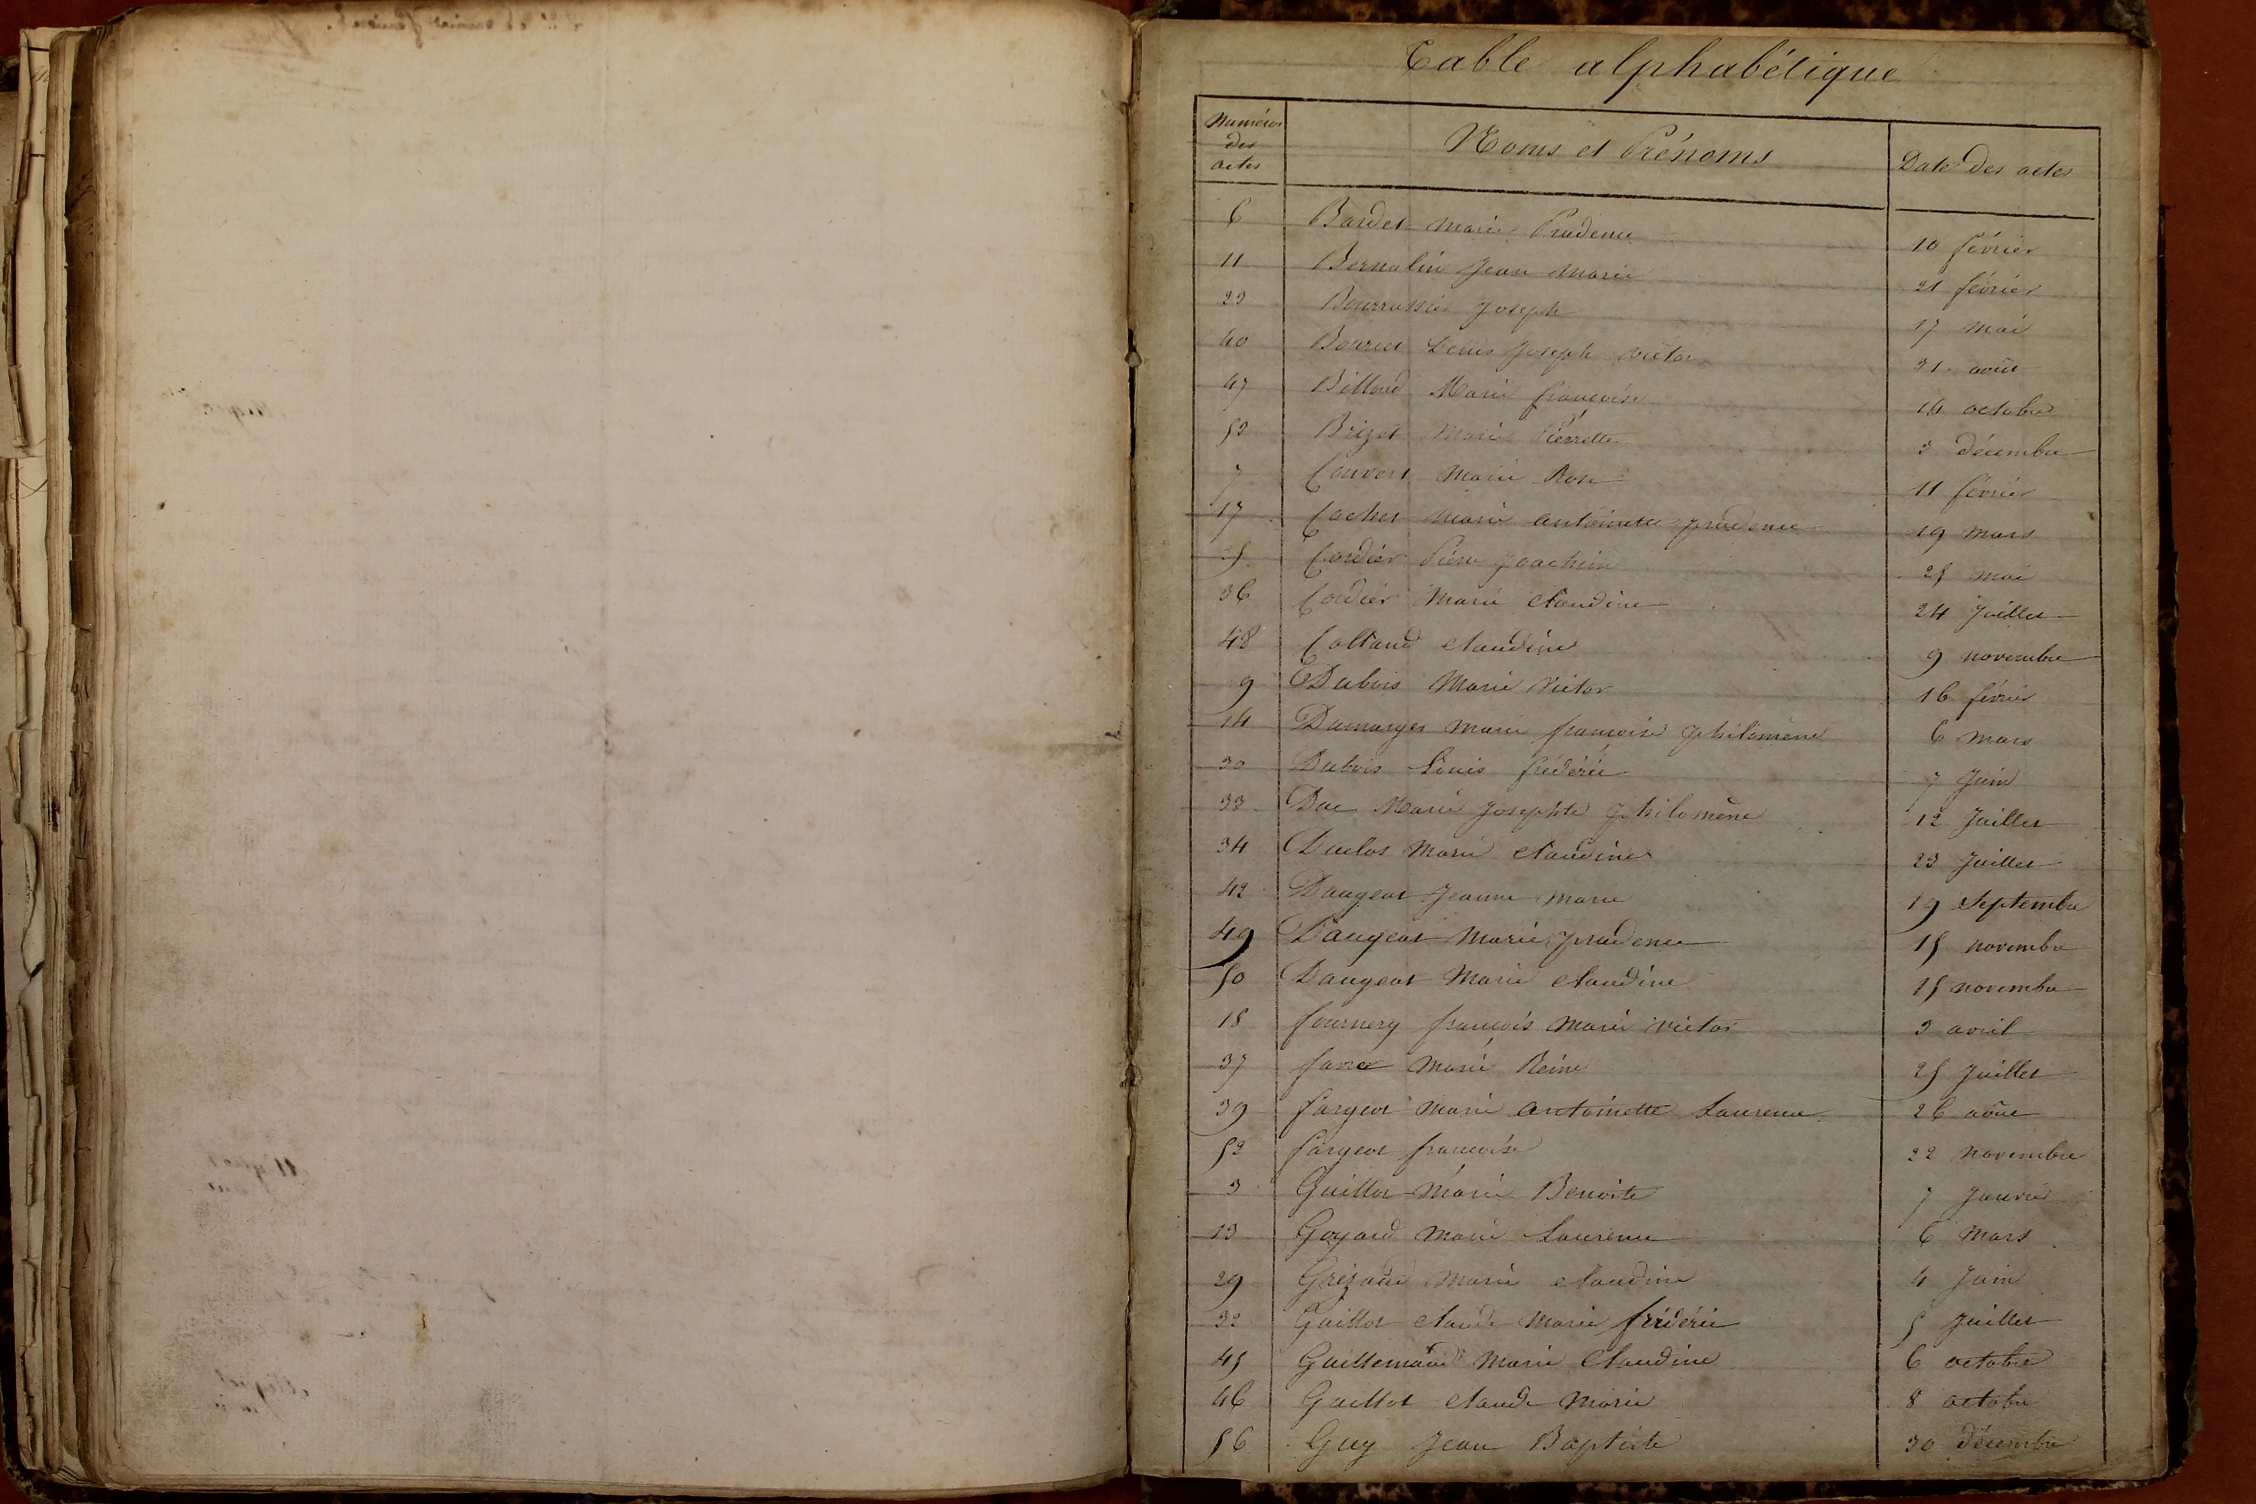 Table alphabétique
Numéros des actes Noms et Prénoms Date des actes
6 Bardet Marie Prudence 10 février
11 Bernalin Jean Marie 21 février
23 Joseph 17 mai
40 Bourcet Louis Joseph Victor 31 août
47 Billoud Marie françoise 14 octobre
53 Brizet Marie Pierrette 3 décembre
7 Couvert Marie Rose 11 février
17 Cochet Marie antoinette prudence 19 mars
25 Cordier Pierre Joachim 25 mai
36 Cordier Marie Claudine 24 Juillet
48 Colland Claudine 9 novembre
9 Dubois Marie Victor 16 février
14 Marie françoise philomène 6 mars
30 Dubois Louis frédéric 7 Juin
33 Duc Marie Josephte philomène 12 Juillet
34 Duclos Marie Claudine 23 Juillet
42 Daujeat Jeanne Marie 19 Septembre
49 Daujeat Marie prudence 15 novembre
50 Daujeat Marie Claudine 15 novembre
18 fournery françois Marie Victor 3 avril
37 favre Marie Reine 25 Juillet
39 fargeot Marie antoinette Laurence 26 août
52 fargeot françoise 22 novembre
3 Guillot Marie Benoite 7 Janvier
13 Goyard Marie Laurence 6 Mars
29 Grézaud Marie Claudine 4 Juin
32 Guillot Claude Marie frédéric 5 Juillet
45 Guillemaud Marie Claudine 6 octobre
46 Guillot Claude Marie 8 octobre
56 Guy Jean Baptiste 30 décembre